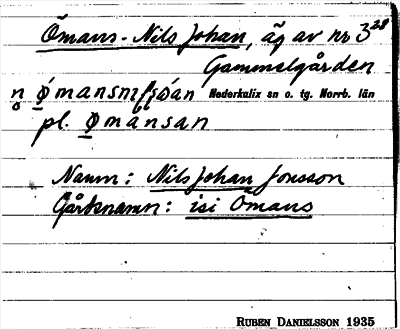 Ömans-Nils Johan, äg av nr 3²⁸
Gammelgården
Nederkalix sn o. tg. Norrb. län
pl. ømansan
Namn: Nils Johan Jonsson
Gårdsnamn: isi Ömans
RUBEN DANIELSSON 1935